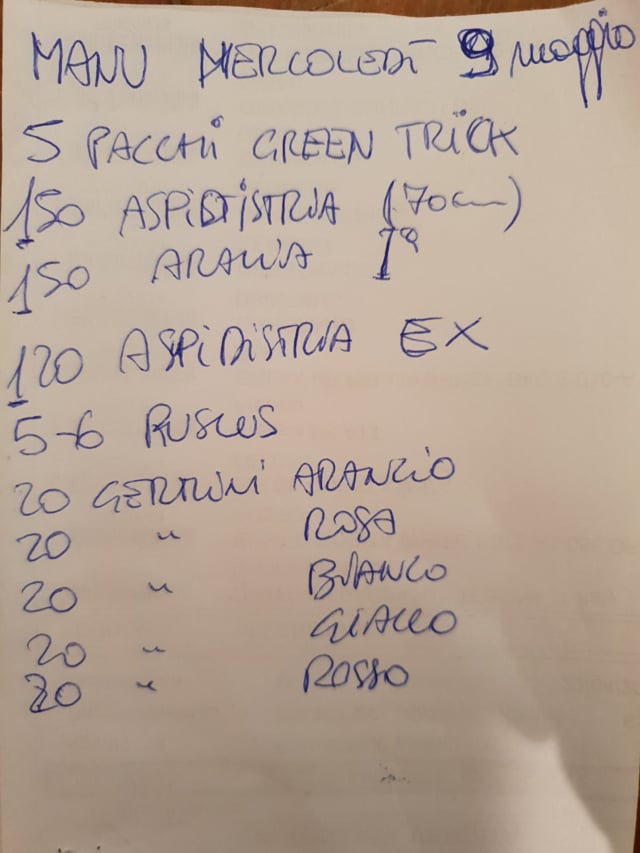 MANU MERCOLEDÌ 9 maggio
5 PACCHI GREEN TRICK
150 ASPIDISTRIA (70cm)
150 ARALIA 1ª
120 ASPIDISTRIA EX
5-6 RUSCUS
20 GERMINI ARANCIO
20 " ROSA
20 " BIANCO
20 " GIALLO
20 " ROSSO